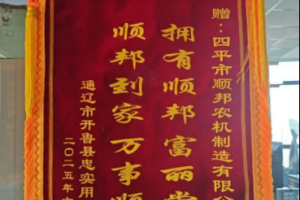 赠：四平市顺邦农机制造有限公
拥有顺邦富丽堂
顺邦到家万事顺
通辽市开鲁县忠实用
二〇二五年